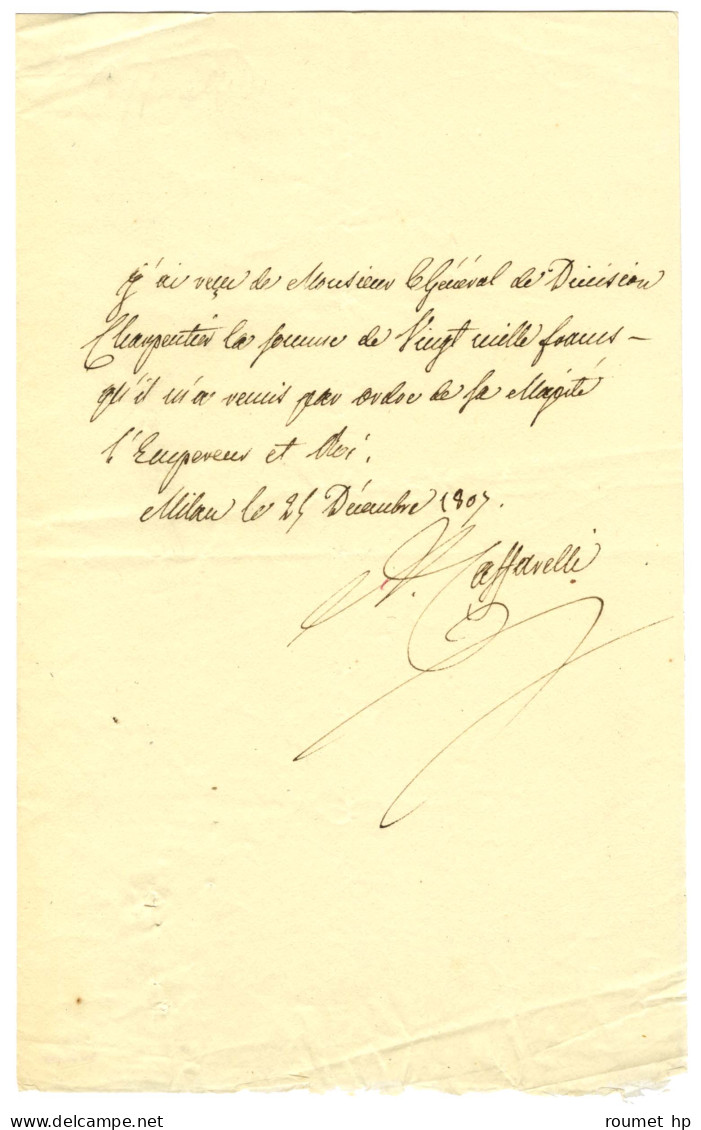 j'ai reçu de Monsieur le Général de Division
Charpentier la somme de Vingt mille francs —
qu'il m'a remis par ordre de sa Majesté
l'Empereur et Roi.
Milan le 25 Décembre 1807.
Caffarelli
delcampe.net
roumet hp